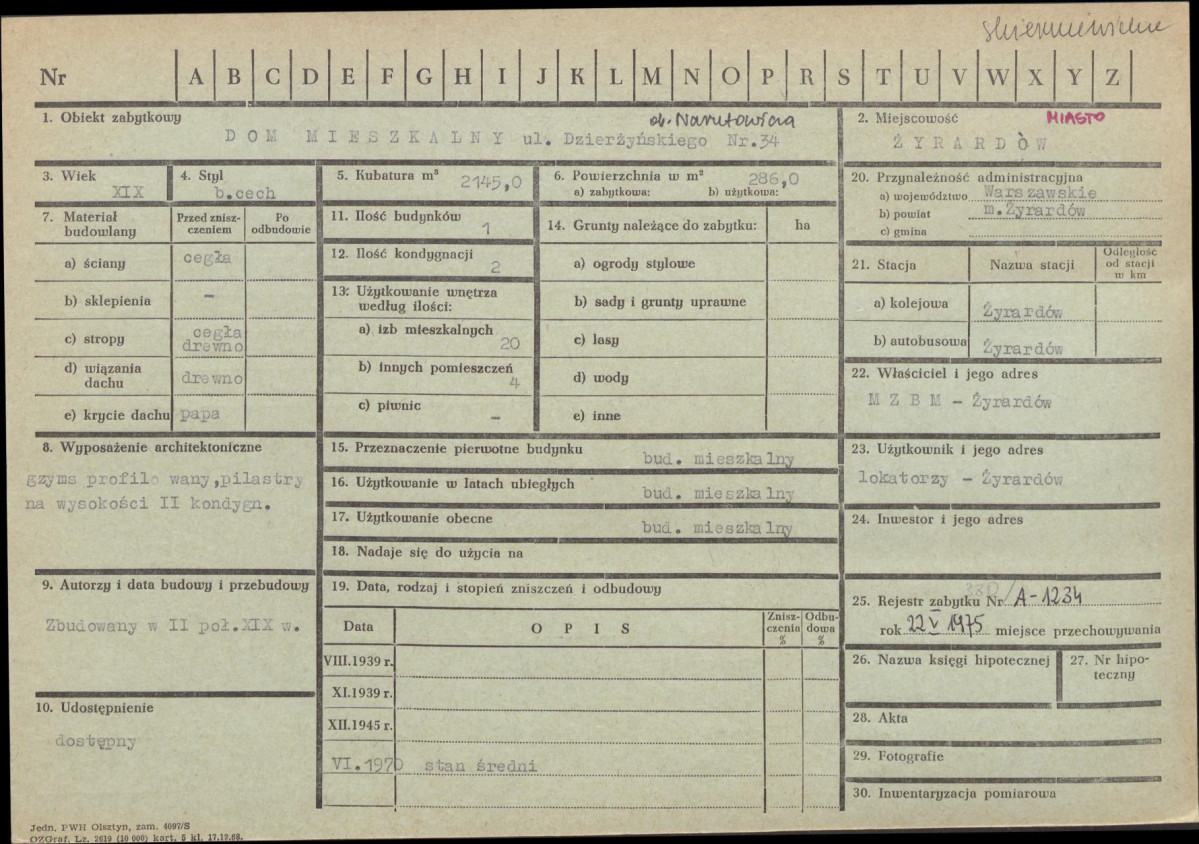 skierniewickie
Nr A B C D E F G H I J K L M N O P R S T U V W X Y Z
1. Obiekt zabytkowy
ob. Narutowicza
DOM MIESZKALNY ul. Dzierżyńskiego Nr.34
2. Miejscowość MIASTO
ŻYRARDÒW
3. Wiek
XIX
4. Styl
b.cech
5. Kubatura m³ 2145,0
6. Powierzchnia w m² 286,0
a) zabytkowa: b) użytkowa:
20. Przynależność administracyjna
a) województwo Warszawskie
b) powiat m.Żyrardów
c) gmina
7. Materiał budowlany
Przed zniszczeniem
Po odbudowie
a) ściany cegła
b) sklepienia –
c) stropy cegła drewno
d) wiązania dachu drewno
e) krycie dachu papa
11. Ilość budynków
1
12. Ilość kondygnacji
2
13. Użytkowanie wnętrza według ilości:
a) izb mieszkalnych
20
b) innych pomieszczeń
4
c) piwnic –
14. Grunty należące do zabytku: ha
a) ogrody stylowe
b) sady i grunty uprawne
c) lasy
d) wody
e) inne
21. Stacja
Nazwa stacji
Odległość od stacji w km
a) kolejowa Żyrardów
b) autobusowa Żyrardów
22. Właściciel i jego adres
M Z B M – Żyrardów
8. Wyposażenie architektoniczne
gzyms profilo wany,pilastry
na wysokości II kondygn.
15. Przeznaczenie pierwotne budynku
bud. mieszkalny
16. Użytkowanie w latach ubiegłych
bud. mieszkalny
17. Użytkowanie obecne bud. mieszkalny
18. Nadaje się do użycia na
23. Użytkownik i jego adres
lokatorzy – Żyrardów
24. Inwestor i jego adres
9. Autorzy i data budowy i przebudowy
Zbudowany w II poł.XIX w.
10. Udostępnienie
dostępny
19. Data, rodzaj i stopień zniszczeń i odbudowy
Data
OPIS
Zniszczenia %
Odbudowa %
VIII.1939 r.
XI.1939 r.
XII.1945 r.
VI.1970 stan średni
25. Rejestr zabytku Nr 330/A-1234
rok 22 V 1975 miejsce przechowywania
26. Nazwa księgi hipotecznej
27. Nr hipoteczny
28. Akta
29. Fotografie
30. Inwentaryzacja pomiarowa
Jedn. PWH Olsztyn, zam. 4097/S
OZGraf. Lz. 2619 (10 000) kart. 5 kl. 17.12.68.